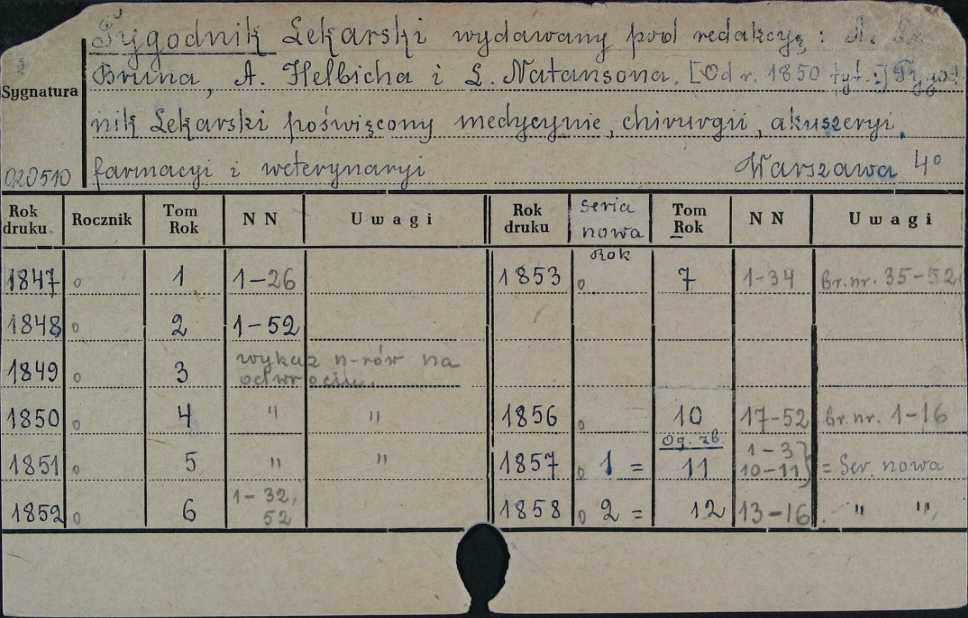 Tygodnik Lekarski wydawany pod redakcyą: A.
Bruna, A. Helbicha i L. Natansona. [Od r. 1850 tyt.:] Tygod
Sygnatura
nik Lekarski poświęcony medycynie, chirurgii, akuszeryi,
020510 farmacyi i weterynaryi Warszawa 4°
Rok druku Rocznik Tom Rok N N Uwagi Rok druku seria nowa Rok Tom Rok N N Uwagi
1847 0 1 1-26 1853 0 7 1-34 Br. nr. 35-52
1848 0 2 1-52
1849 0 3 wykaz n-rów na odwrociu.
1850 0 4 " " 1856 0 10 17-52 Br. nr. 1-16
Og. zb.
1851 0 5 " " 1857 0 1 = 11 1-3 10-11} = Ser. nowa
1852 0 6 1-32, 52 1858 0 2 = 12 13-16 " "